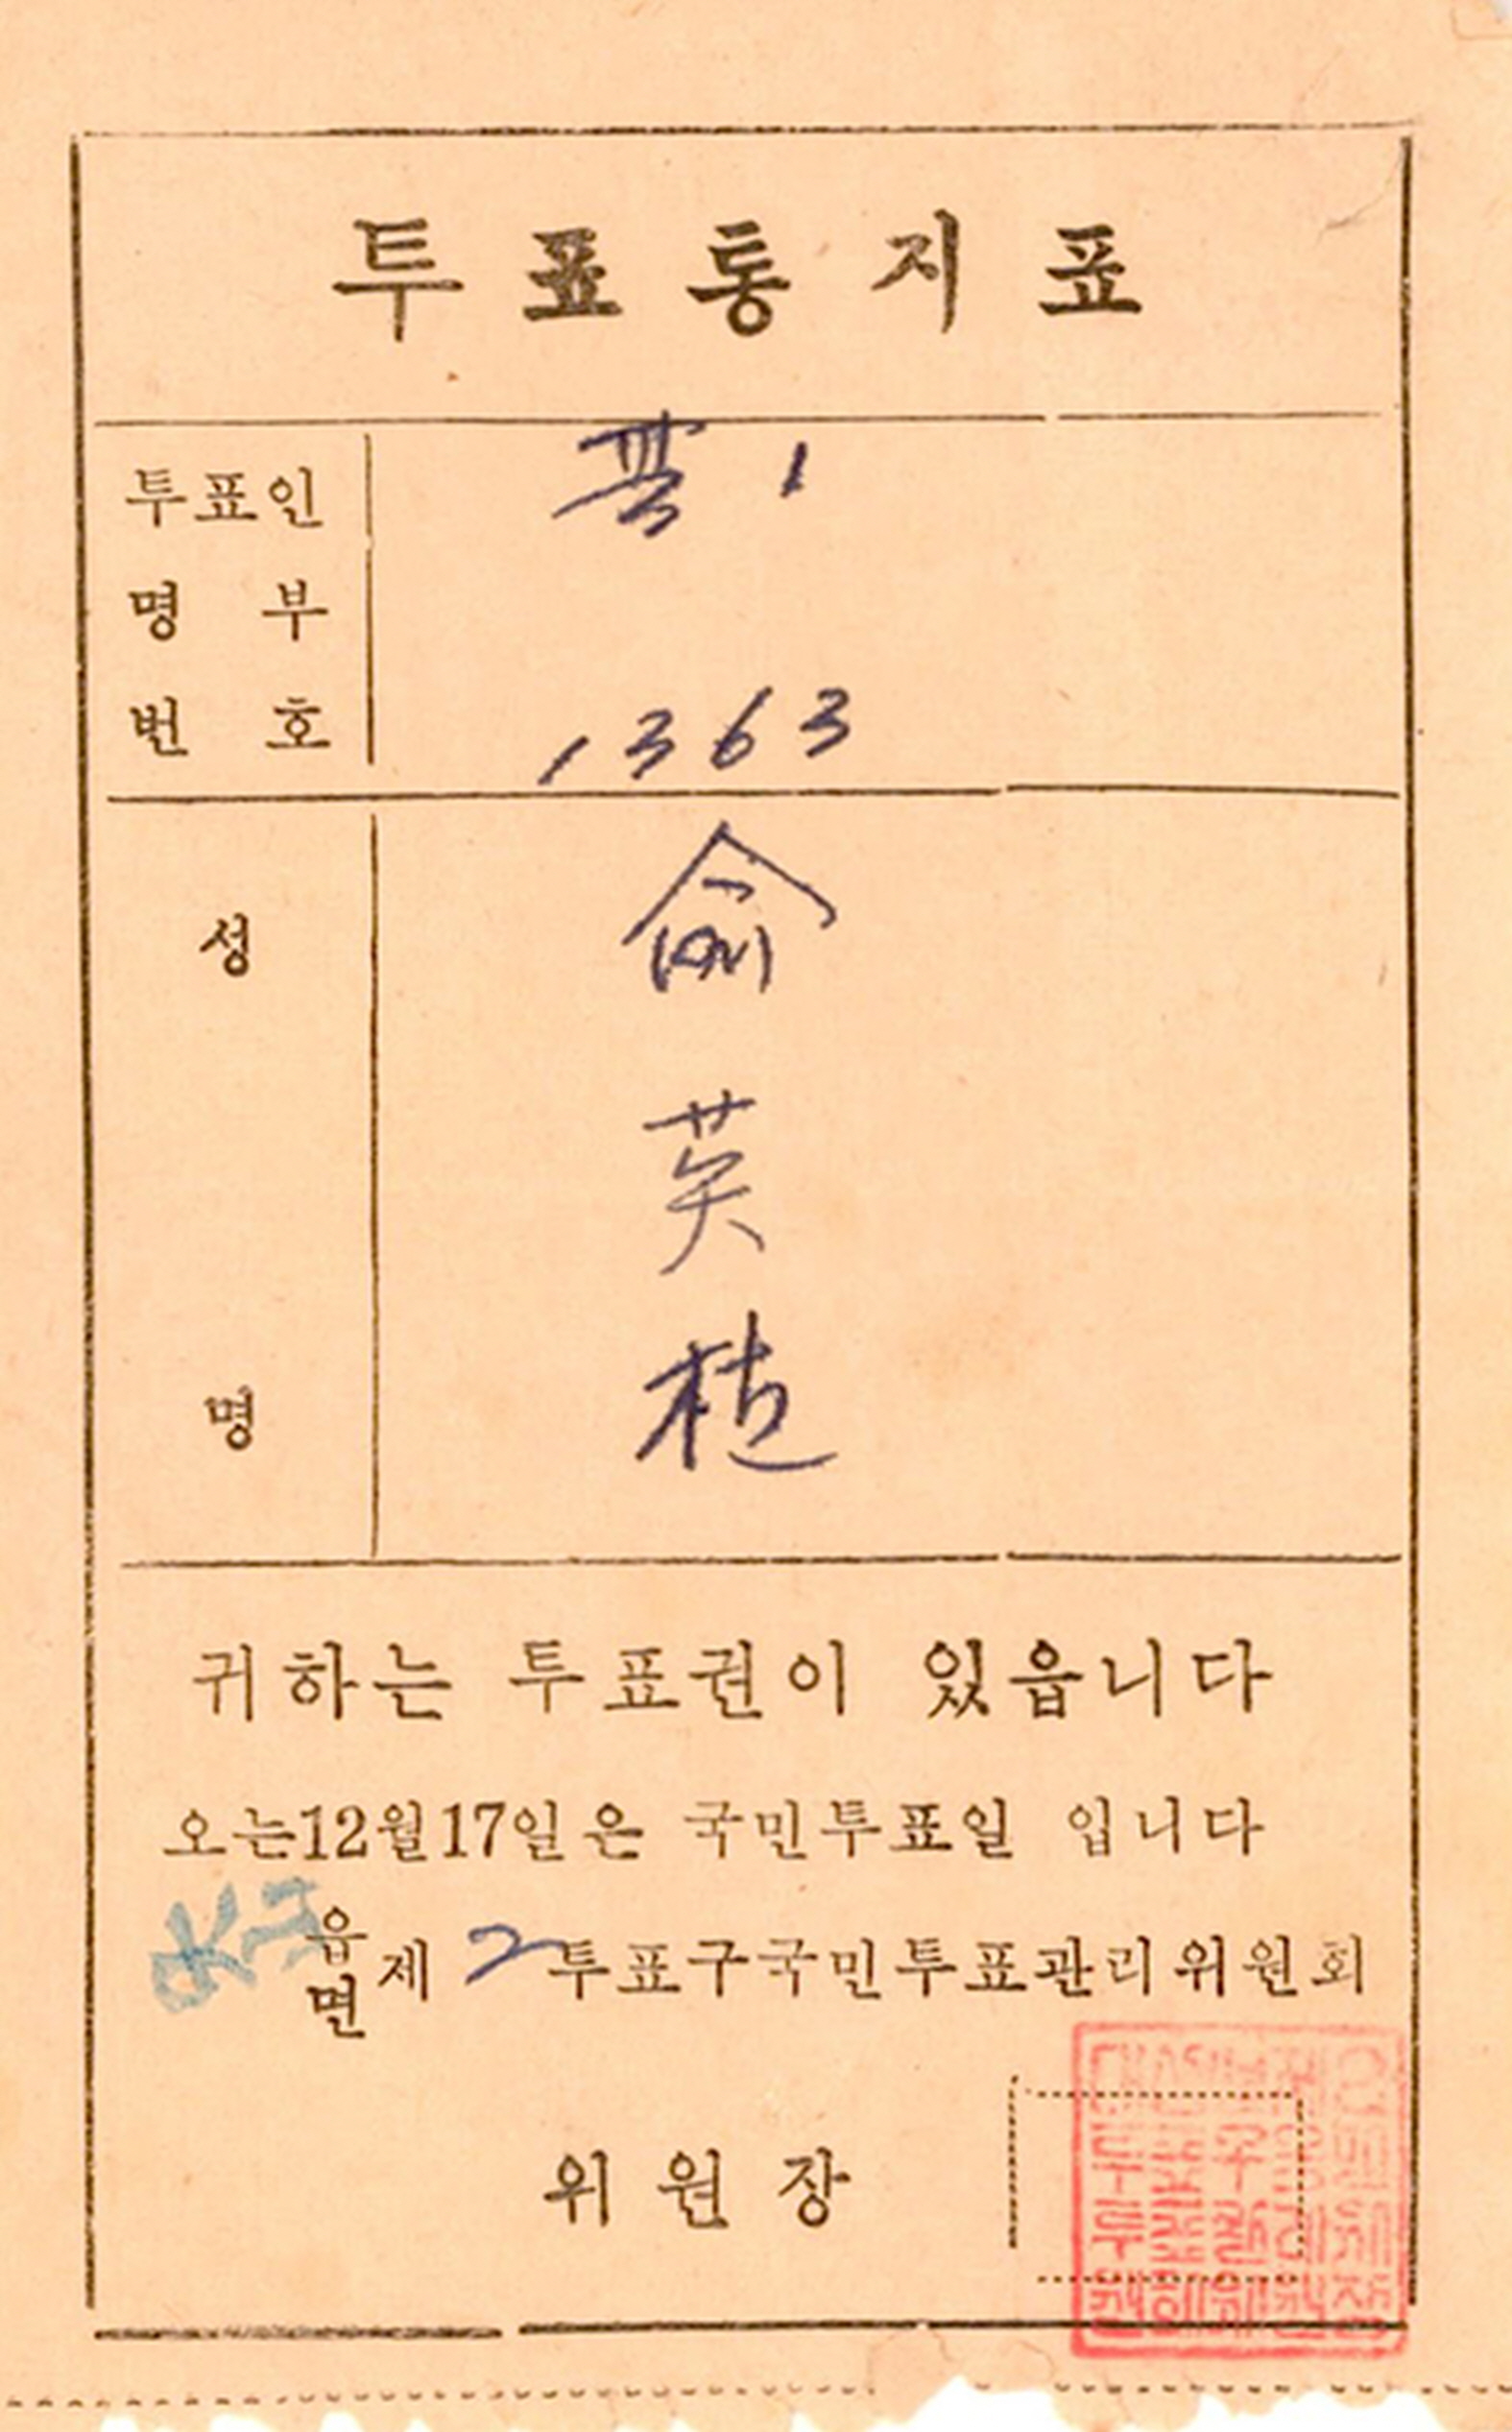 투표통지표
투표인
명부
번호
1
1363
성명
兪英植
귀하는 투표권이 있읍니다
오는12월17일은 국민투표일 입니다
읍
면
제 2 투표구국민투표관리위원회
위원장